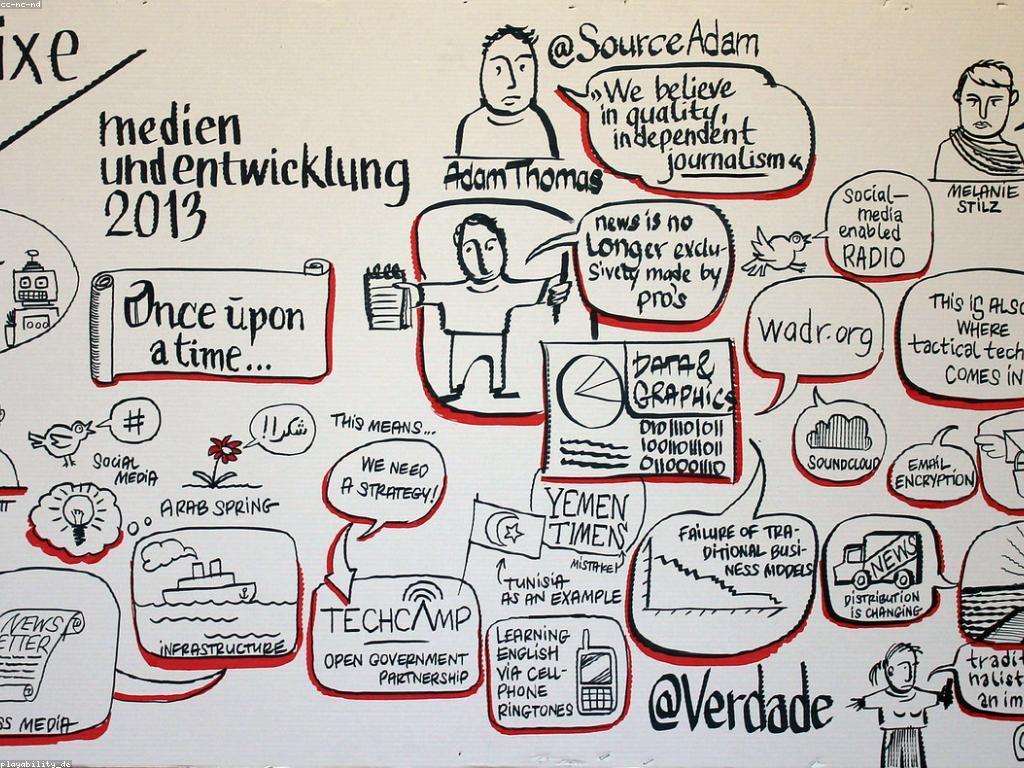 cc-nc-nd
ixe
medien
und entwicklung
2013
@SourceAdam
"We believe
in quality,
independent
journalism"
Adam Thomas
MELANIE
STILZ
Social-
media
enabled
RADIO
news is no
longer exclu-
sively made by
pro's
Once upon
a time...
wadr.org
THIS IS ALSO
WHERE
tactical tech
COMES IN
DATA &
GRAPHICS
#
SOCIAL
MEDIA
شكرا!!
ARAB SPRING
THIS MEANS...
WE NEED
A STRATEGY!
SOUNDCLOUD
EMAIL
ENCRYPTION
YEMEN
TIMES
MISTAKE!
TUNISIA
AS AN EXAMPLE
FAILURE OF TRA-
DITIONAL BUSI-
NESS MODELS
NEWS
DISTRIBUTION
IS CHANGING
NEWS
ETTER
SS MEDIA
INFRASTRUCTURE
TECHCAMP
OPEN GOVERNMENT
PARTNERSHIP
LEARNING
ENGLISH
VIA CELL-
PHONE
RINGTONES
@Verdade
tradit
nalist
an im
playability_de